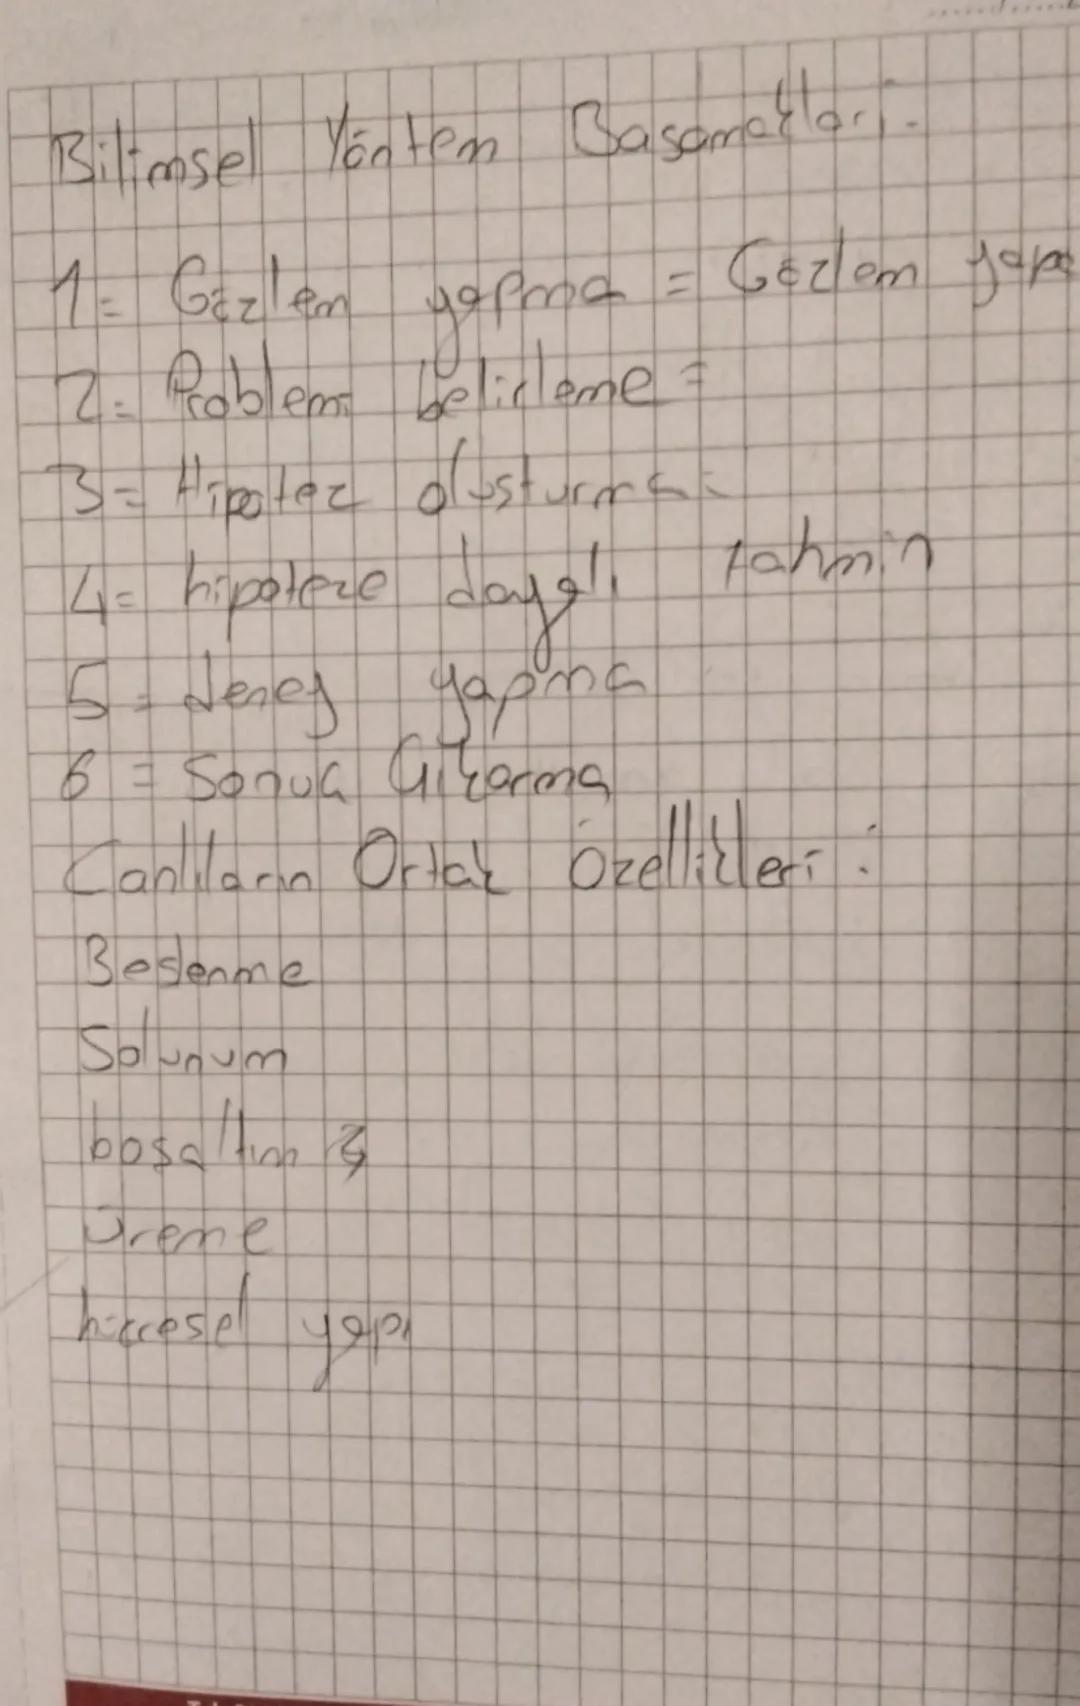 Bilimsel Yöntem Basamakları.
1= Gözlem yapma = Gözlem yapa
2= Problem belirleme =
3= Hipotez olusturma =
4= hipoteze dayalı tahmin
5= deney yapma
6= Sonuc Cıkarma
Canlıların Ortak Özellikleri :
Beslenme
Solunum
bosaltım
Üreme
hücresel yapı